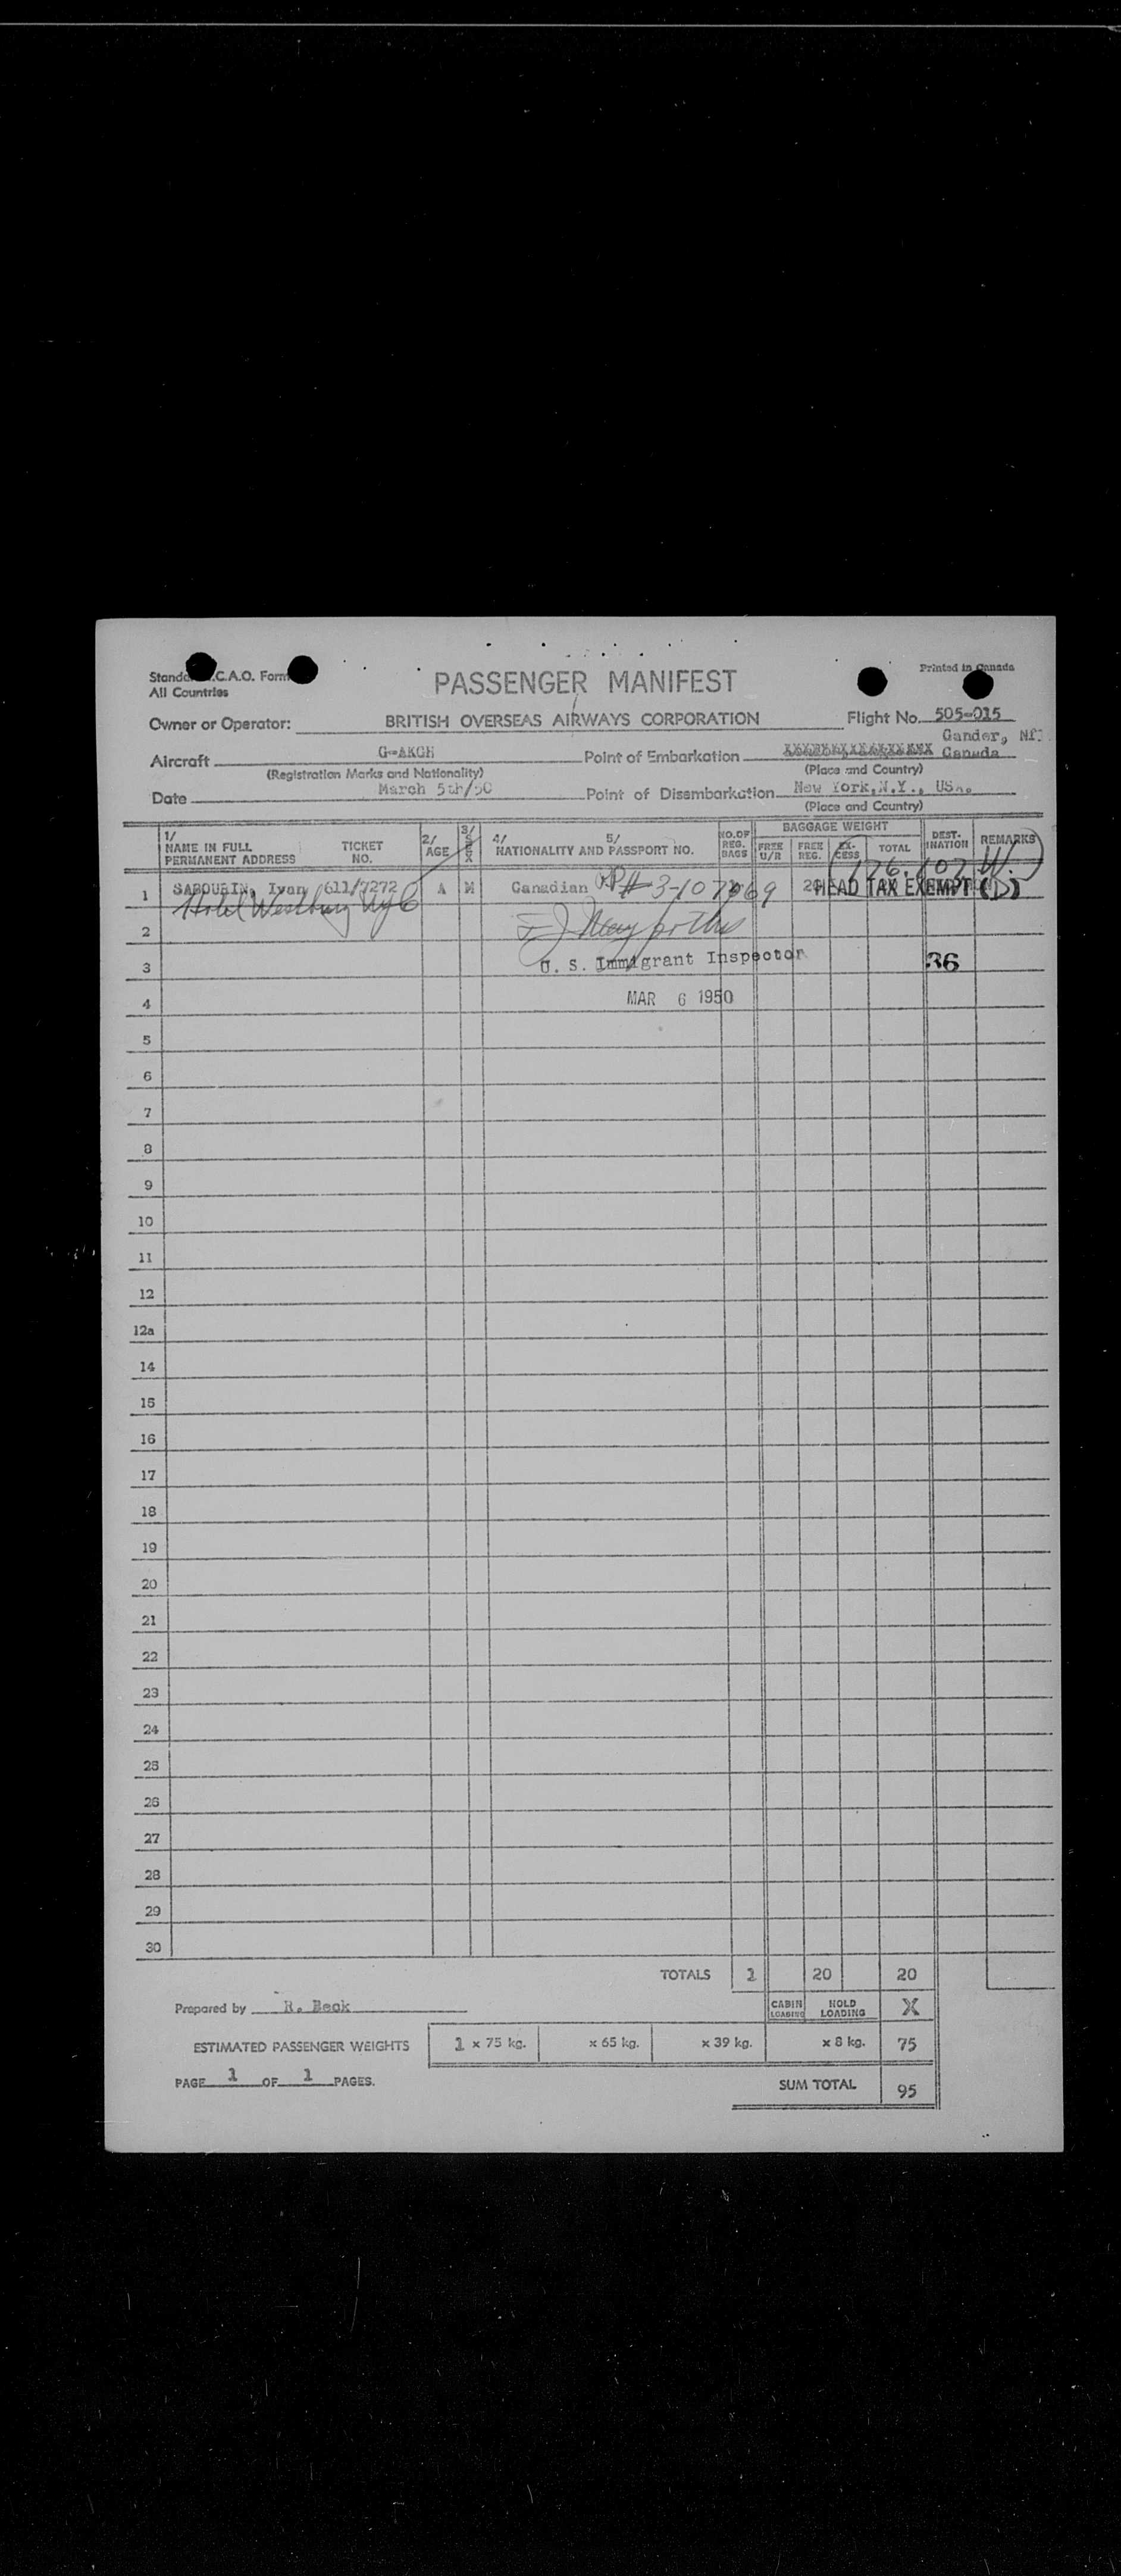 Standa .C.A.O. Form
All Countries
Printed in Canada
PASSENGER MANIFEST
Owner or Operator: BRITISH OVERSEAS AIRWAYS CORPORATION Flight No. 505-015
Gander, Nf
Aircraft G-AKGH Point of Embarkation Canada
(Registration Marks and Nationality) (Place and Country)
Date March 5th/50 Point of Disembarkation New York, N.Y., USA.
(Place and Country)
1/ NAME IN FULL PERMANENT ADDRESS TICKET NO. 2/ AGE 3/ SEX 4/ NATIONALITY AND 5/ PASSPORT NO. NO. OF REG. BAGS BAGGAGE WEIGHT FREE U/R FREE REG. EX-CESS TOTAL DEST-INATION REMARKS
(176.107 W.)
1 SABOURIN, Ivan 611/7272 A M Canadian PP# 3-107069 20 HEAD TAX EXEMPT (D)
Hotel Westbury NYC
2
U. S. Immigrant Inspector
3 36
MAR 6 1950
4
5
6
7
8
9
10
11
12
12a
14
15
16
17
18
19
20
21
22
23
24
25
26
27
28
29
30
TOTALS 1 20 20
Prepared by R. Beck CABIN LOADING HOLD LOADING X
ESTIMATED PASSENGER WEIGHTS 1 x 75 kg. x 65 kg. x 39 kg. x 8 kg. 75
PAGE 1 OF 1 PAGES.
SUM TOTAL 95